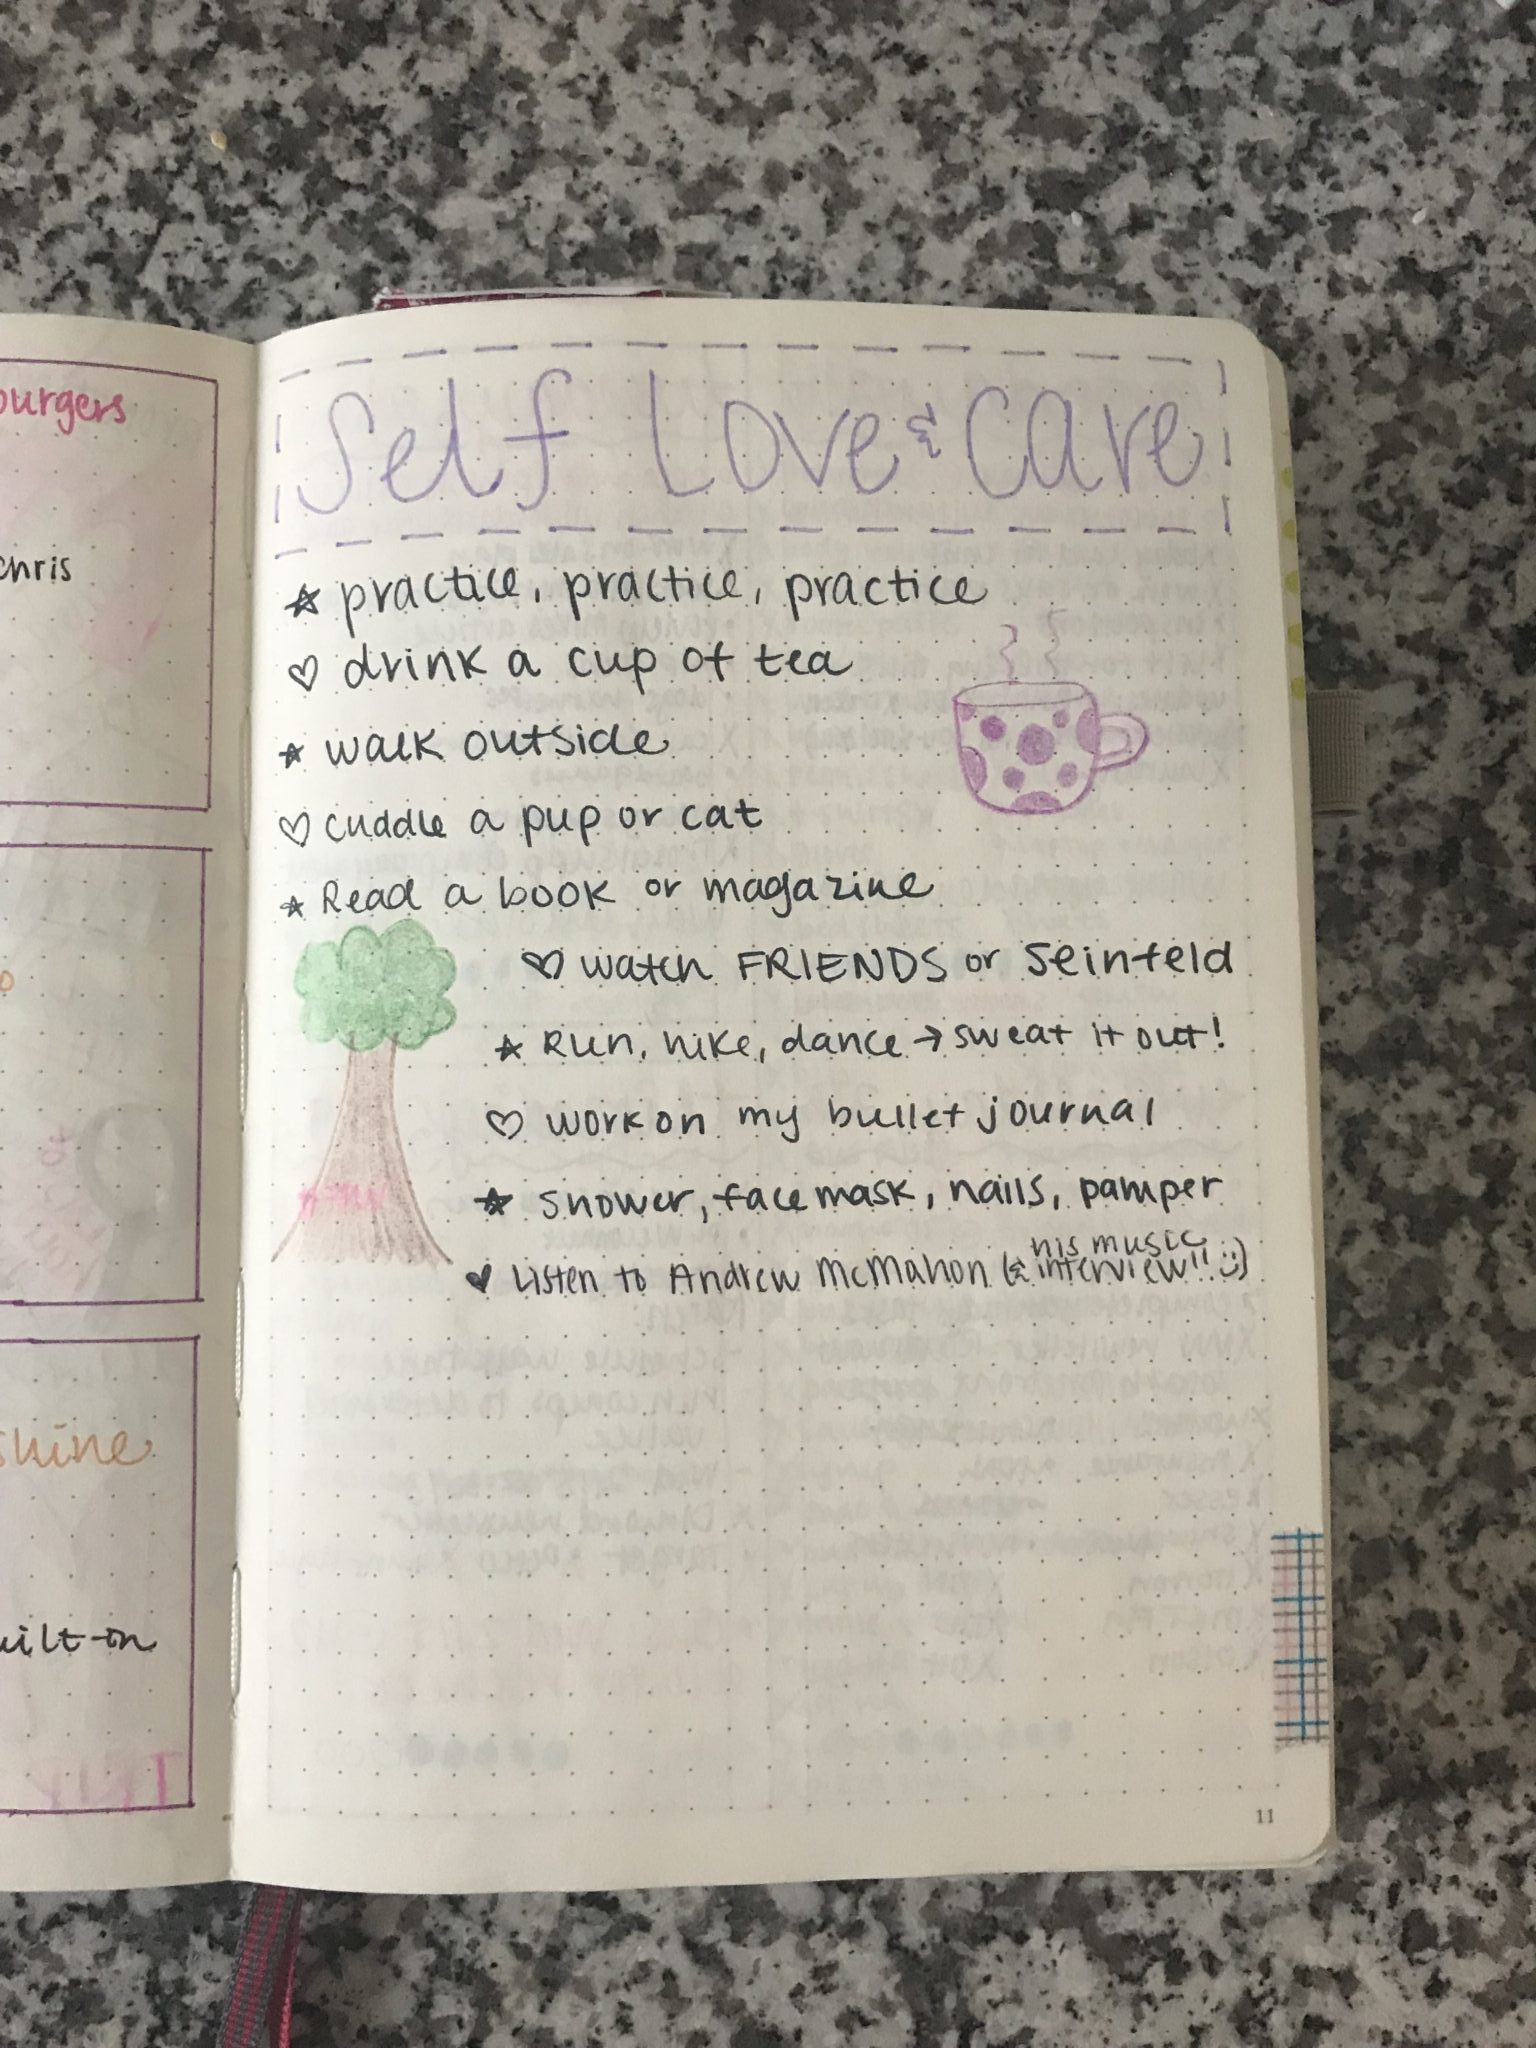 burgers
chris
shine
Self Love & Care
practice, practice, practice
drink a cup of tea
walk outside
cuddle a pup or cat
Read a book or magazine
watch FRIENDS or Seinfeld
Run, hike, dance → sweat it out!
work on my bullet journal
shower, face mask, nails, pamper
Listen to Andrew McMahon (& his music interview!! :)
11